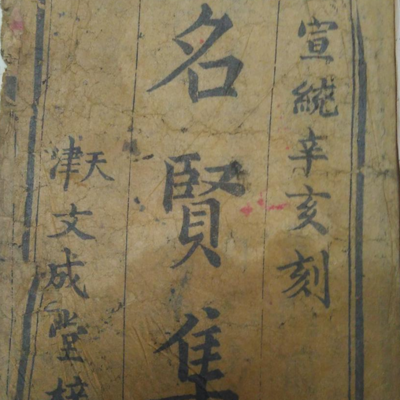 宣統辛亥刻
名賢集
天津文成堂梓